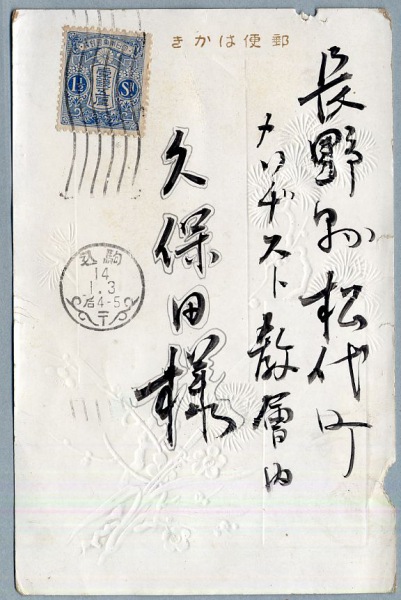 郵便はかき
長野県松代町
メソヂスト教会内
久保田様
1½Sn
駒込
14
1.3
后4-5
〒